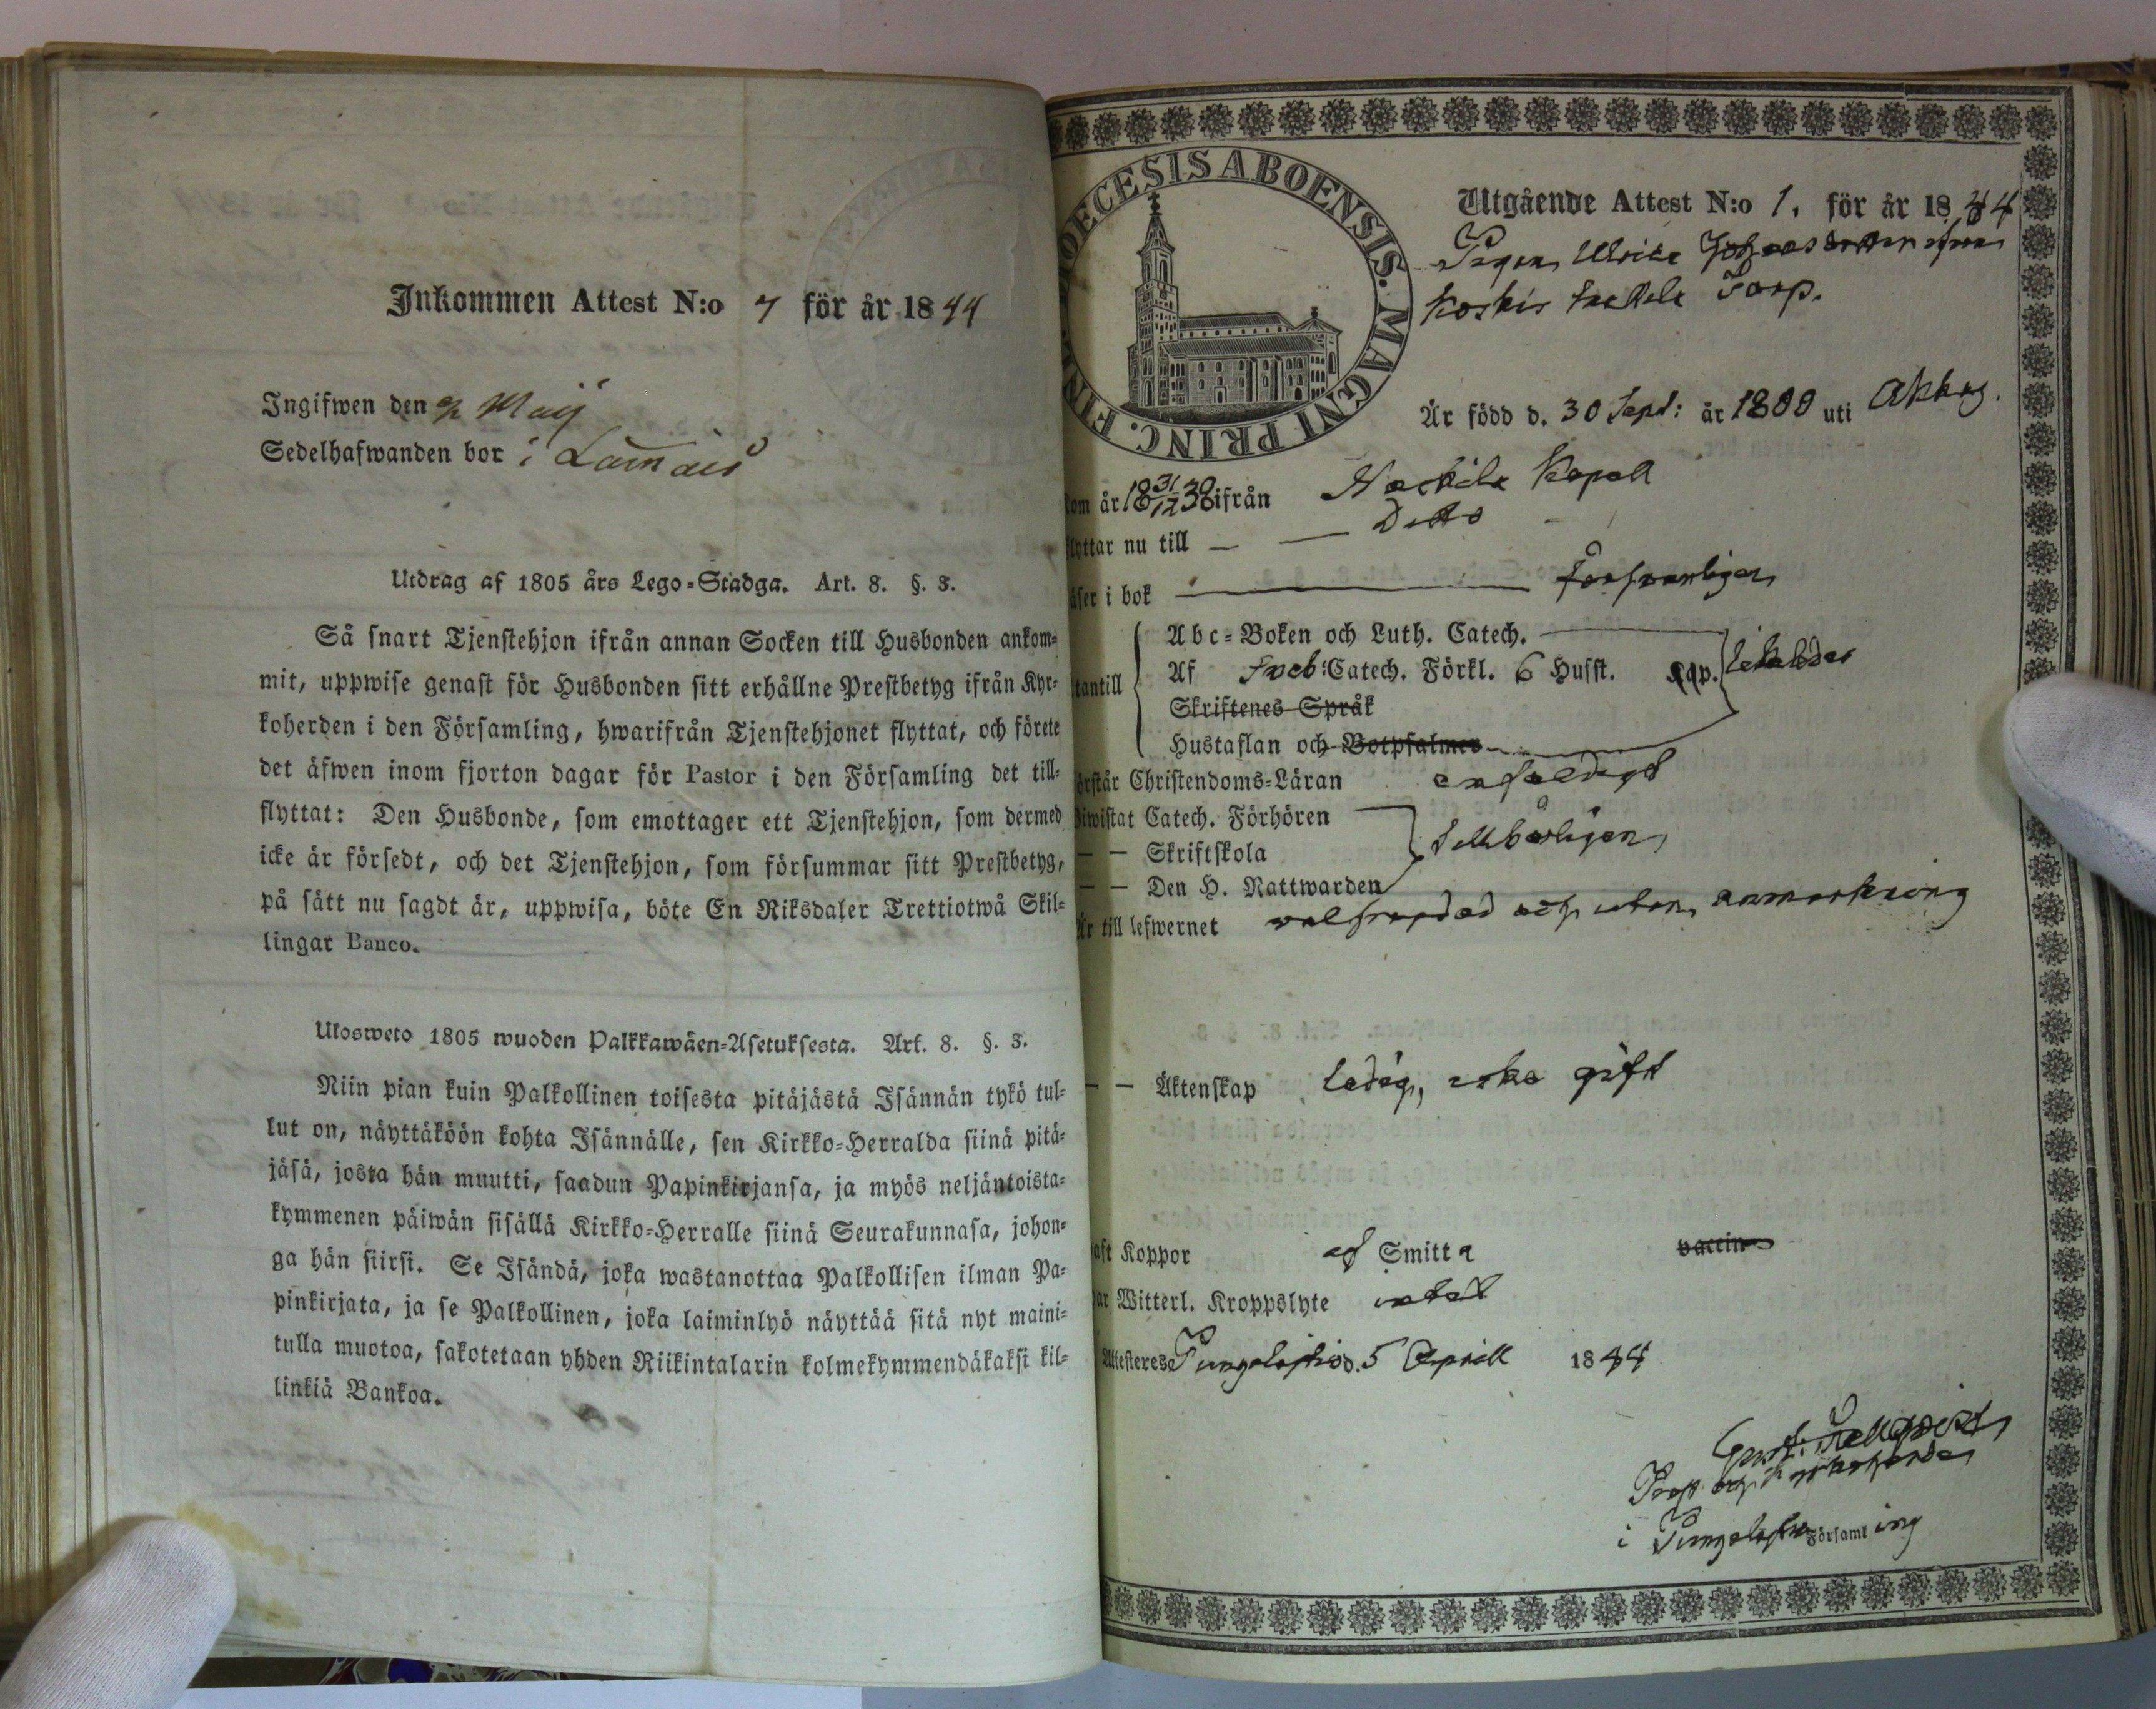 Inkommen Attest N:o 7 för år 1844
Ingifwen den 9/2 Maij
Sedelhafwanden bor i
Utdrag af 1805 års Lego-Stadga. Art. 8. §. 3.
Så snart Tjenstehjon ifrån annan Socken till Husbonden ankom-
mit, uppwise genast för Husbonden sitt erhållne Prestbetyg ifrån Kyr-
koherden i den Församling, hwarifrån Tjenstehjonet flyttat, och förete
det äfwen inom fjorton dagar för Pastor i den Församling det till-
flyttat: Den Husbonde, som emottager ett Tjenstehjon, som dermed
icke är försedt, och det Tjenstehjon, som försummar sitt Prestbetyg,
på sätt nu sagdt är, uppwisa, böte En Riksdaler Trettiotwå Skil-
lingar Banco.
Ulosweto 1805 wuoden Palkkawäen-Asetuksesta. Art. 8. §. 3.
Niin pian kuin Palkollinen toisesta pitäjästä Isännän tykö tul-
lut on, näyttäköön kohta Isännälle, sen Kirkko-Herralda siinä pitä-
jäsä, josta hän muutti, saadun Papinkirjansa, ja myös neljäntoista-
kymmenen päiwän sisällä Kirkko-Herralle siinä Seurakunnasa, johon-
ga hän siirsi. Se Isändä, joka wastanottaa Palkollisen ilman Pa-
pinkirjata, ja se Palkollinen, joka laiminlyö näyttää sitä nyt maini-
tulla muotoa, sakotetaan yhden Riikintalarin kolmekymmendäkaksi kil-
linkiä Bankoa.
DIOECESIS ABOENSIS. MAGNI PRINC. FINL.
Utgående Attest N:o 1. för år 1844
Pigan Ulrica
Koskis Torp.
Är född d. 30 Sept: år 1800 uti
kom år 18 31/12 38 ifrån Kapell
flyttar nu till — — Ditto
läser i bok — försvarligen
Abc-Boken och Luth. Catech.
utantill Af Sveb: Catech. Förkl. 6 Husst. Sp. likaledes
Skriftenes Språk
Hustaflan och Botpsalmer
örstår Christendoms-Läran enfaldigt
Biwistat Catech. Förhören
— — Skriftskola tillbörligen
— — Den H. Nattwarden
Är till lefwernet välfrejdad och utan anmärkning
— — Äktenskap ledig, icke gift
aft Koppor af Smitta vaccin
ar Witterl. Kroppslyte intet
Attesteres Pungelaitio d. 5 Aprill 1844
Prop och Kyrkoherde
i Pungelaitio Församling